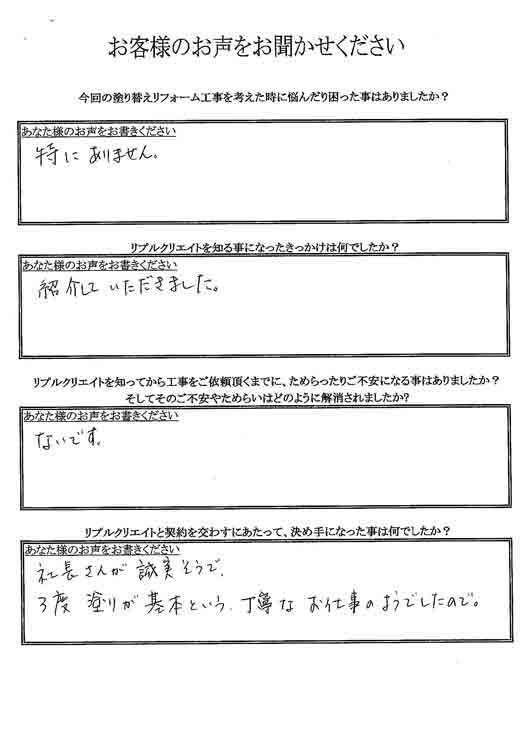 お客様のお声をお聞かせください
今回の塗り替えリフォーム工事を考えた時に悩んだり困った事はありましたか？
あなた様のお声をお書きください
特にありません。
リブルクリエイトを知る事になったきっかけは何でしたか？
あなた様のお声をお書きください
紹介していただきました。
リブルクリエイトを知ってから工事をご依頼頂くまでに、ためらったりご不安になる事はありましたか？
そしてそのご不安やためらいはどのように解消されましたか？
あなた様のお声をお書きください
ないです。
リブルクリエイトと契約を交わすにあたって、決め手になった事は何でしたか？
あなた様のお声をお書きください
社長さんが誠実そうで、
3度塗りが基本という、丁寧なお仕事のようでしたので。